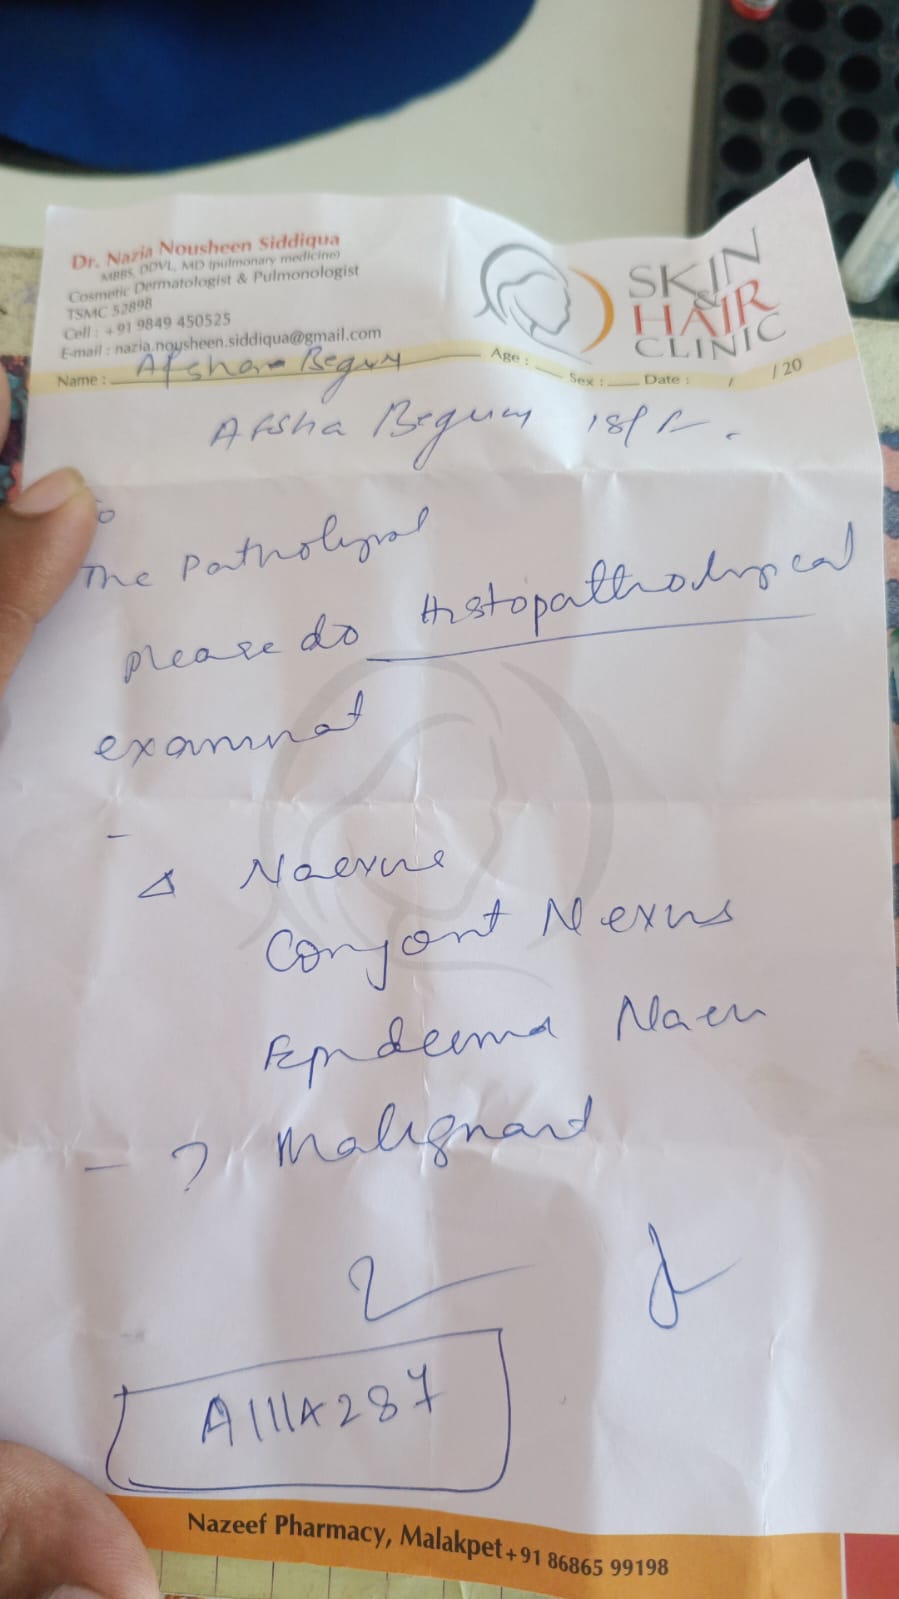 Dr. Nazia Nousheen Siddiqua
MBBS, DDVL, MD (pulmonary medicine)
Cosmetic Dermatologist & Pulmonologist
TSMC 52898
Cell : +91 9849 450525
E-mail : nazia.nousheen.siddiqua@gmail.com
SKIN
&
HAIR
CLINIC
Name : Afshan Begum Age : Sex : Date : / /20
Afsha Begum 18/F
To
The Pathologist
please do Histopathological
examinat
Δ Naevus
Conjont Nevus
Epidermal Naev
- ? Malignant
A111A287
Nazeef Pharmacy, Malakpet +91 86865 99198